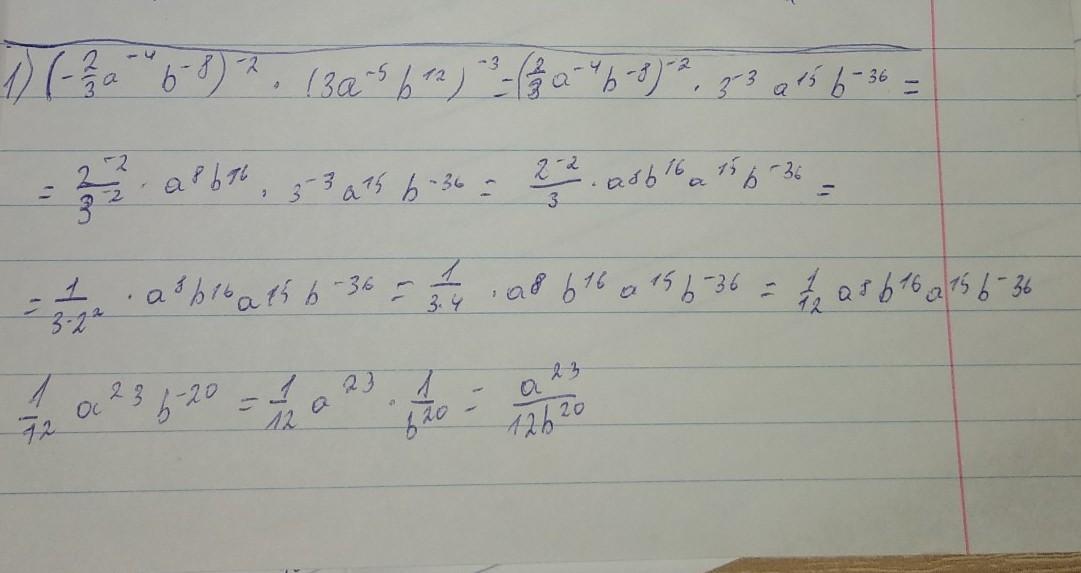 1) (-2/3 a⁻⁴ b⁻⁸)⁻² · (3a⁻⁵ b¹²)⁻³ = (2/3 a⁻⁴ b⁻⁸)⁻² · 3⁻³ a¹⁵ b⁻³⁶ =
= 2⁻²/3⁻² · a⁸ b¹⁶ · 3⁻³ a¹⁵ b⁻³⁶ = 2⁻²/3 · a⁸ b¹⁶ a¹⁵ b⁻³⁶ =
= 1/(3·2²) · a⁸ b¹⁶ a¹⁵ b⁻³⁶ = 1/(3·4) · a⁸ b¹⁶ a¹⁵ b⁻³⁶ = 1/12 a⁸ b¹⁶ a¹⁵ b⁻³⁶
1/12 a²³ b⁻²⁰ = 1/12 a²³ · 1/b²⁰ = a²³/(12b²⁰)